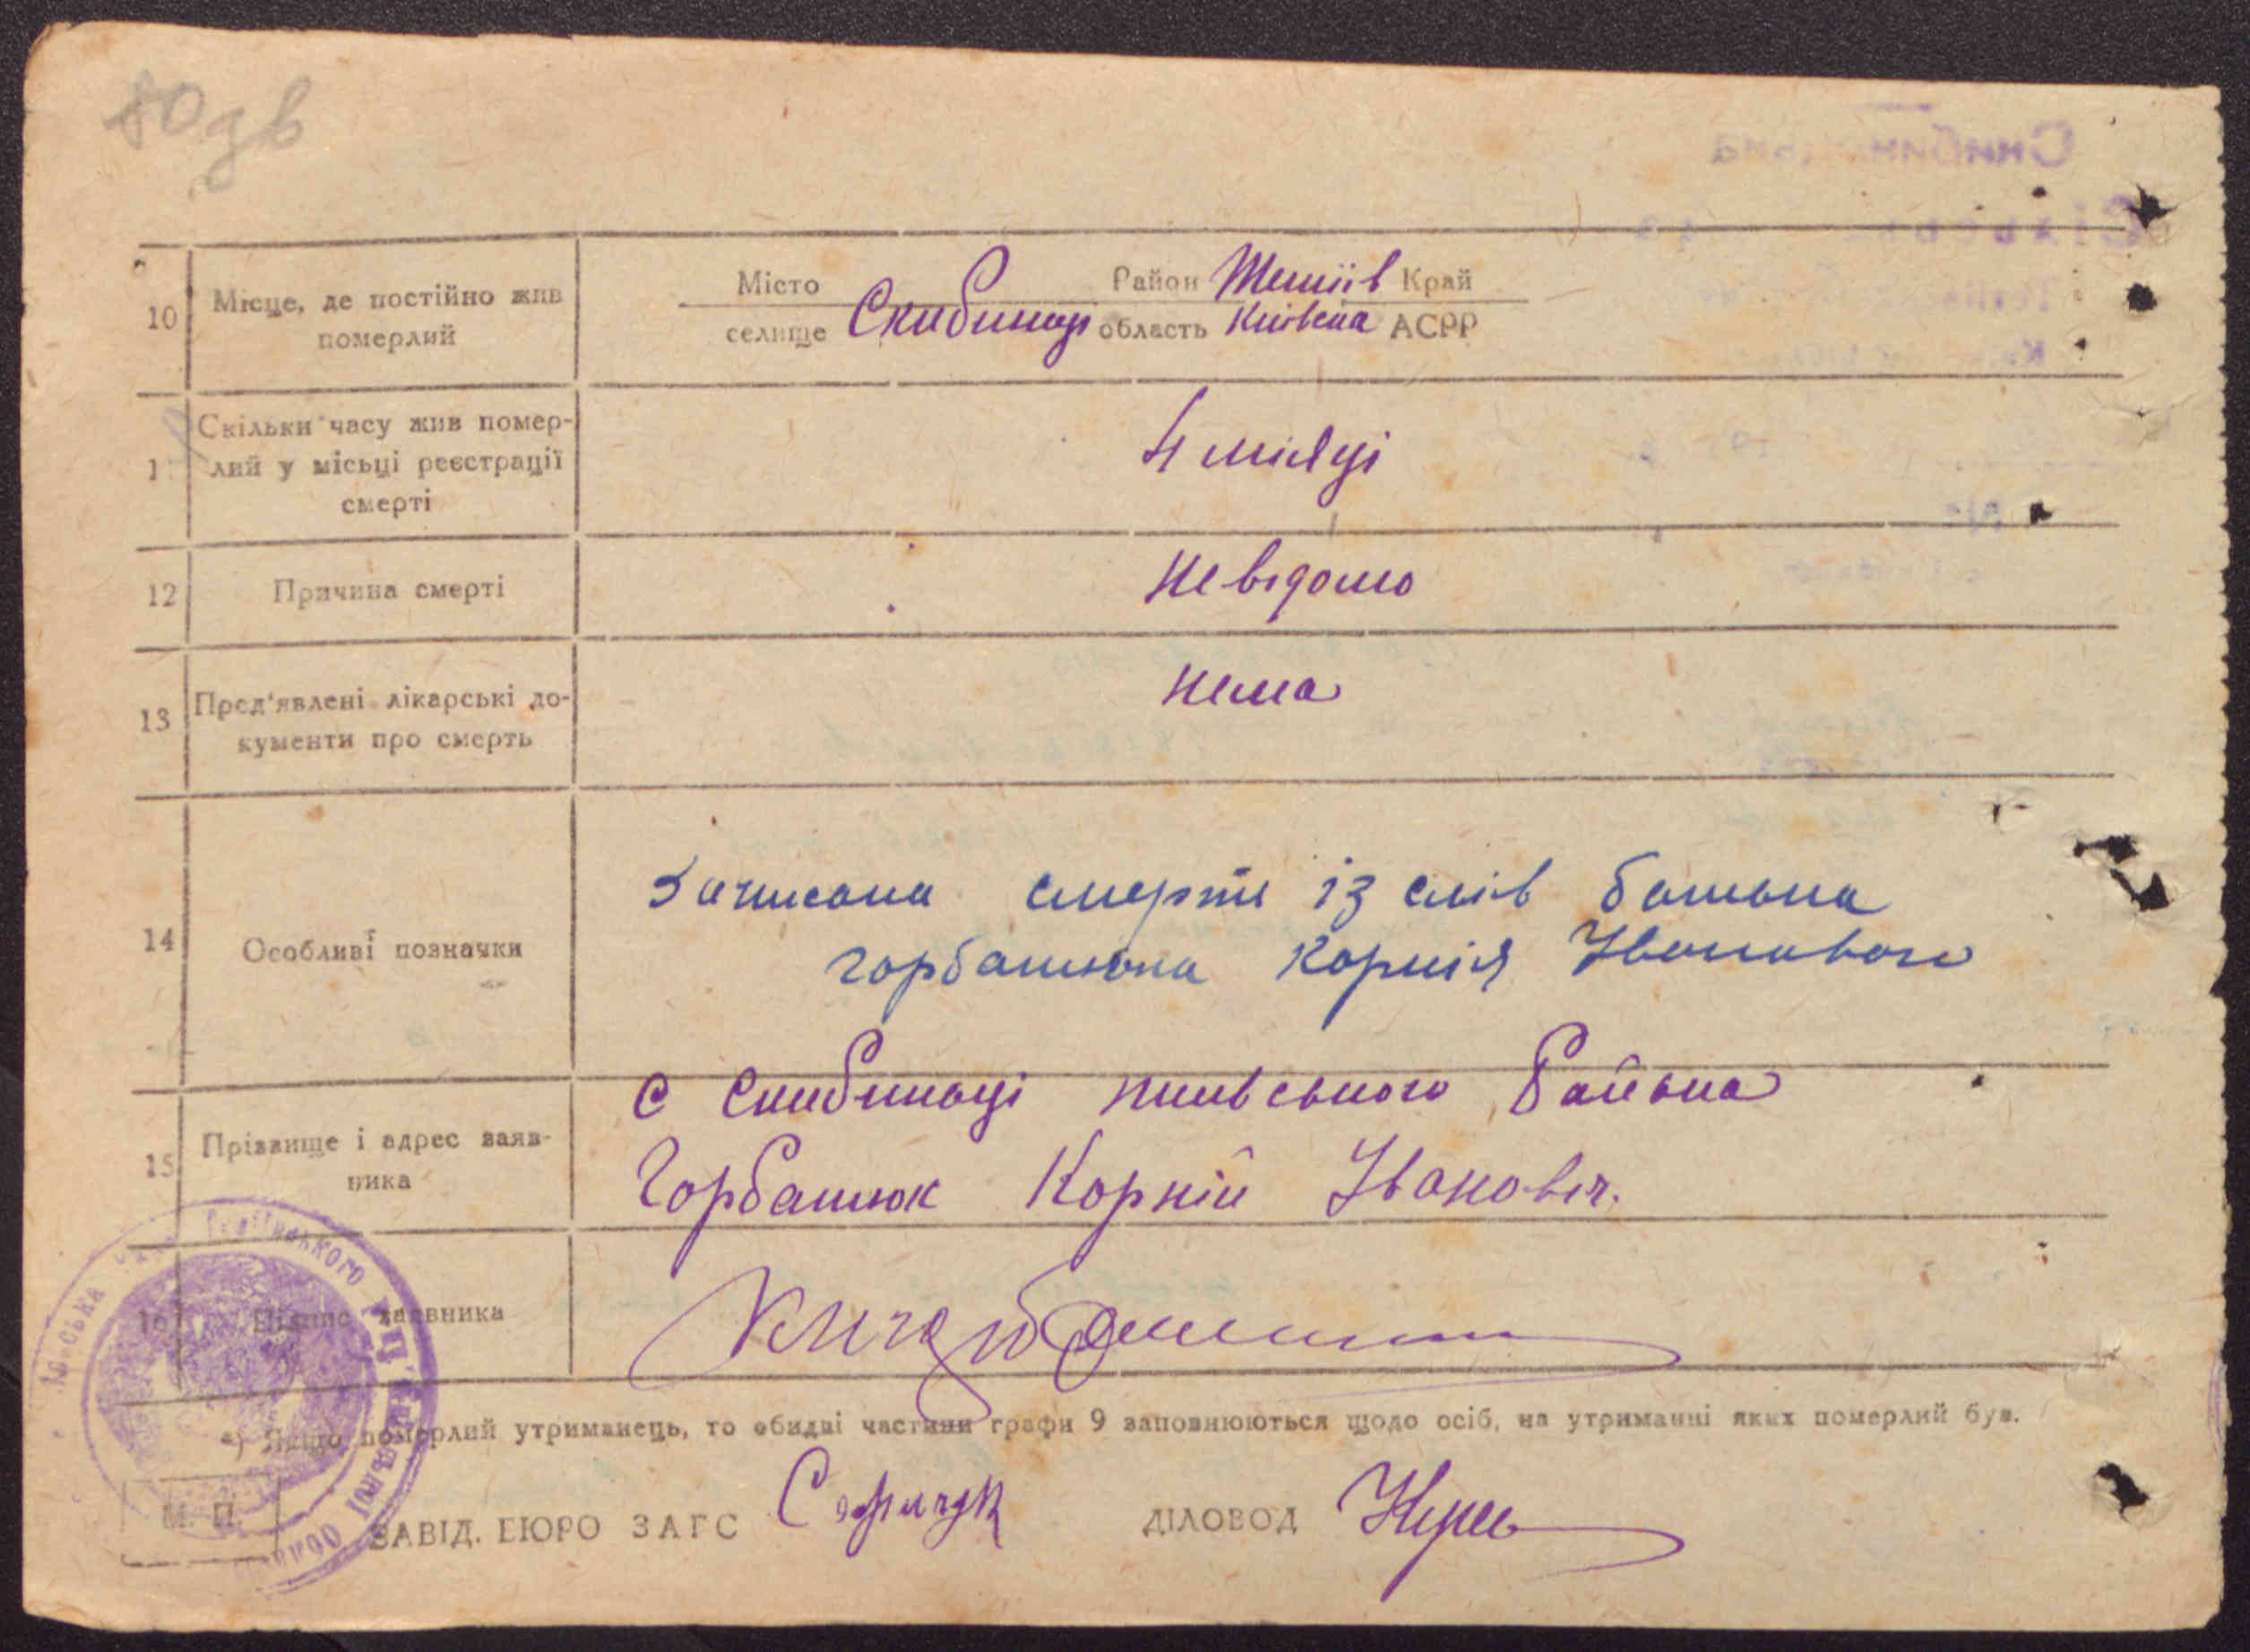 80 зв
10 Місце, де постійно жив померлий
Місто Район Тетіїв Край
селище Скибинці область Київська АСРР
11 Скільки часу жив померлий у місьці реєстрації смерті
4 місяці
12 Причина смерті
Не відомо
13 Пред'явлені лікарські документи про смерть
нема
14 Особливі позначки
Записана смерть із слів батька
горбатюка Корнія Івановича
с Скибиньці
Района
15 Прізвище і адрес заявника
Горбатюк Корній Іванович.
16 Підпис заявника
*) Якщо померлий утриманець, то обидві частини графи 9 заповнюються щодо осіб, на утриманні яких померлий був.
М. П.
ЗАВІД. БЮРО ЗАГС
ДІЛОВОД